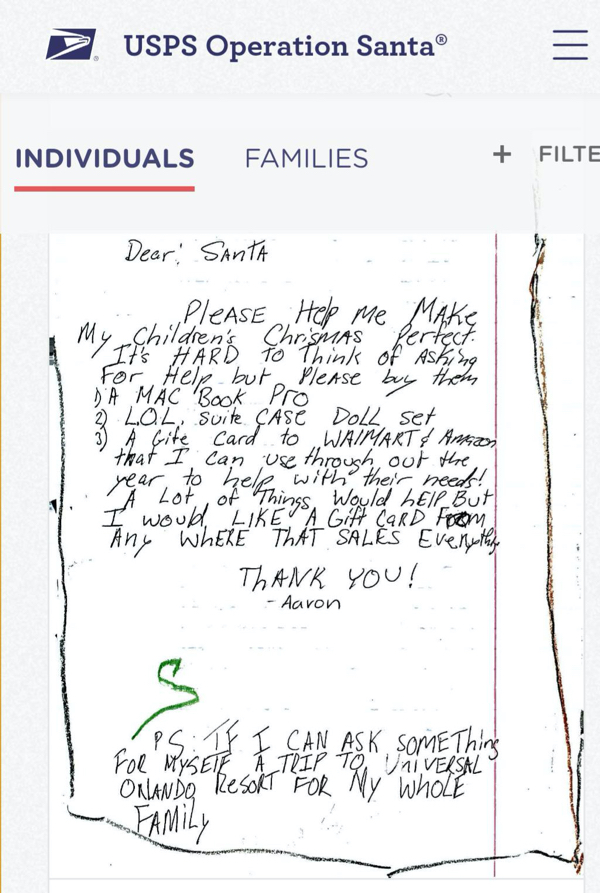 USPS Operation Santa®
INDIVIDUALS FAMILIES + FILTE
Dear: SANTA
PLEASE Help Me MAKe
My Children's ChrisMAS Perfect.
It's HARD TO Think of ASking
For Help but PleAse buy them
1) A MAC Book Pro
2) L.O.L. Suite CASE Doll set
3) A Gite Card to WAlMART & Amazon
that I can use through out the
year to help with their needs!
A Lot of Things Would hElP But
I would LIKE A Gift CaRD FROM
Any WHERE THAT SALES Everything
THANK YOU!
- Aaron
S
PS. IF I CAN ASK SOMEThing
FOR MYSELF A TRIP TO UNIVERSAL
ORlANDO ResoRT FOR My WHOLE
FAMILy